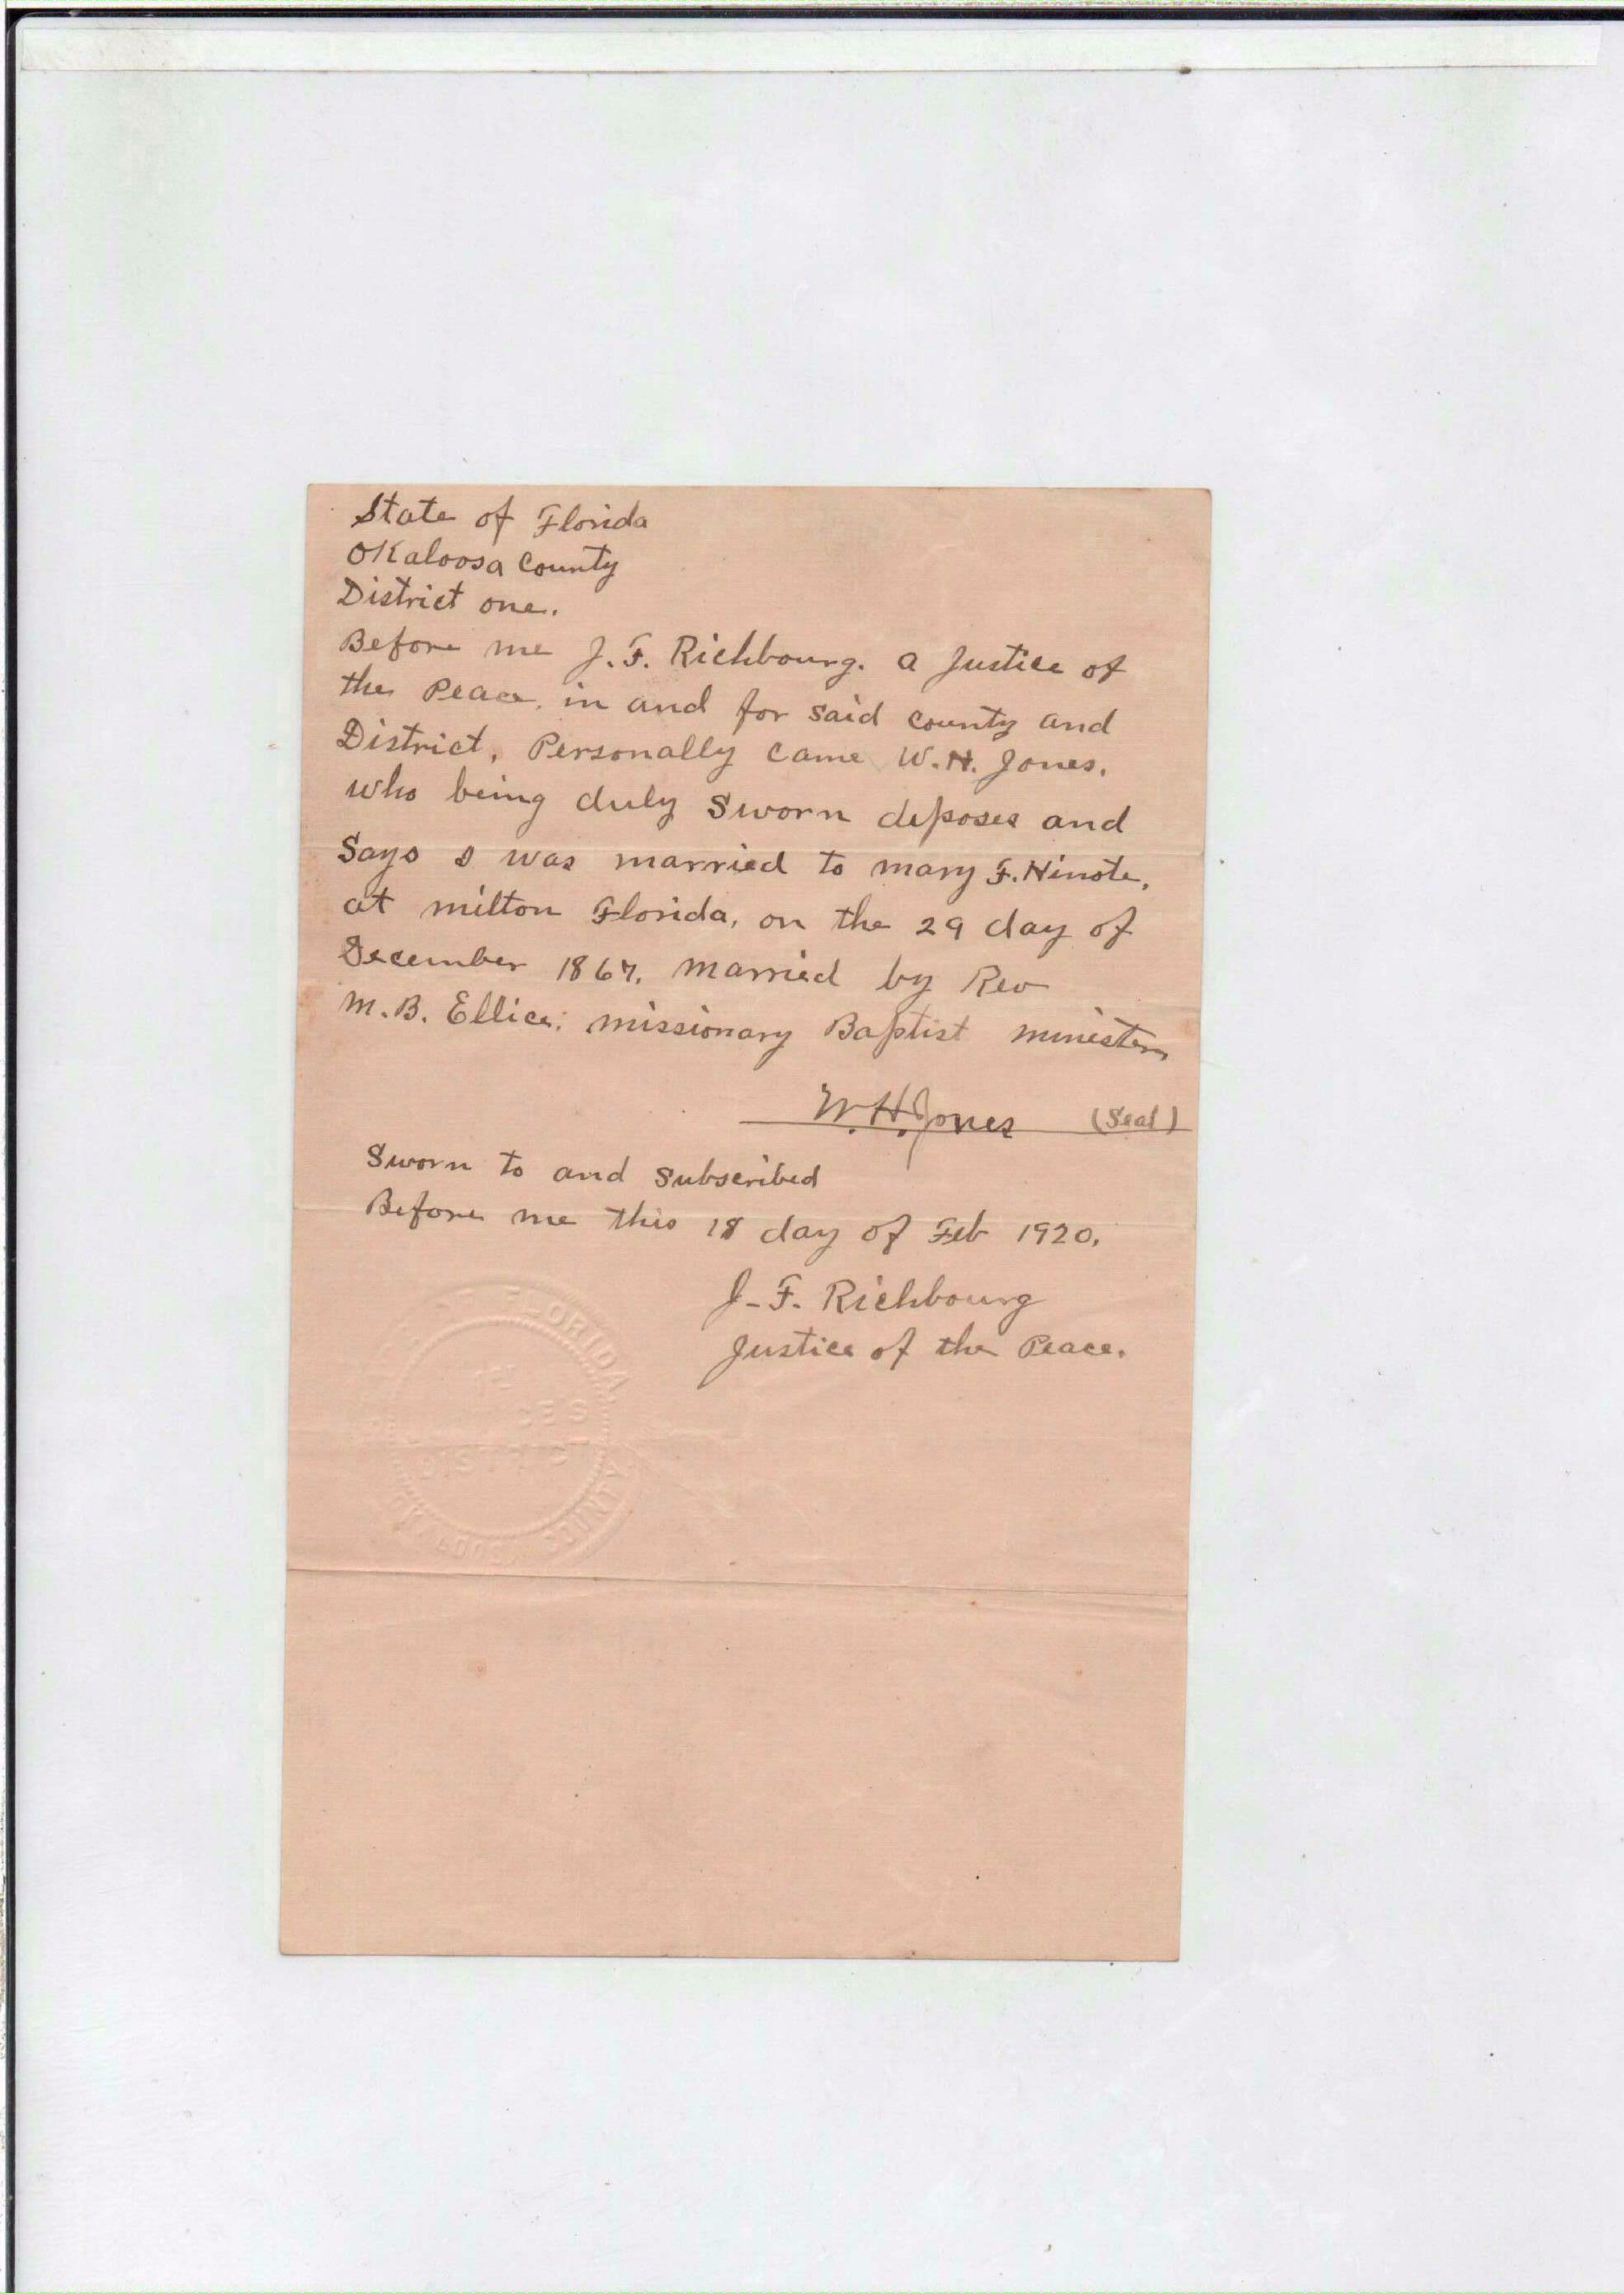 State of Florida
Okaloosa County
District one.
Before me J. F. Richbourg. a Justice of
the Peace, in and for said county and
District, Personally came W. H. Jones.
who being duly Sworn deposes and
Says I was married to mary F. Hinote,
at milton Florida, on the 29 day of
December 1867. married by Rev
M. B. Ellice; missionary Baptist minister
W. H. Jones (Seal)
Sworn to and Subscribed
Before me this 18 day of Feb 1920.
J. F. Richbourg
Justice of the Peace.
FLORIDA
DISTRICT
OKALOOSA COUNTY